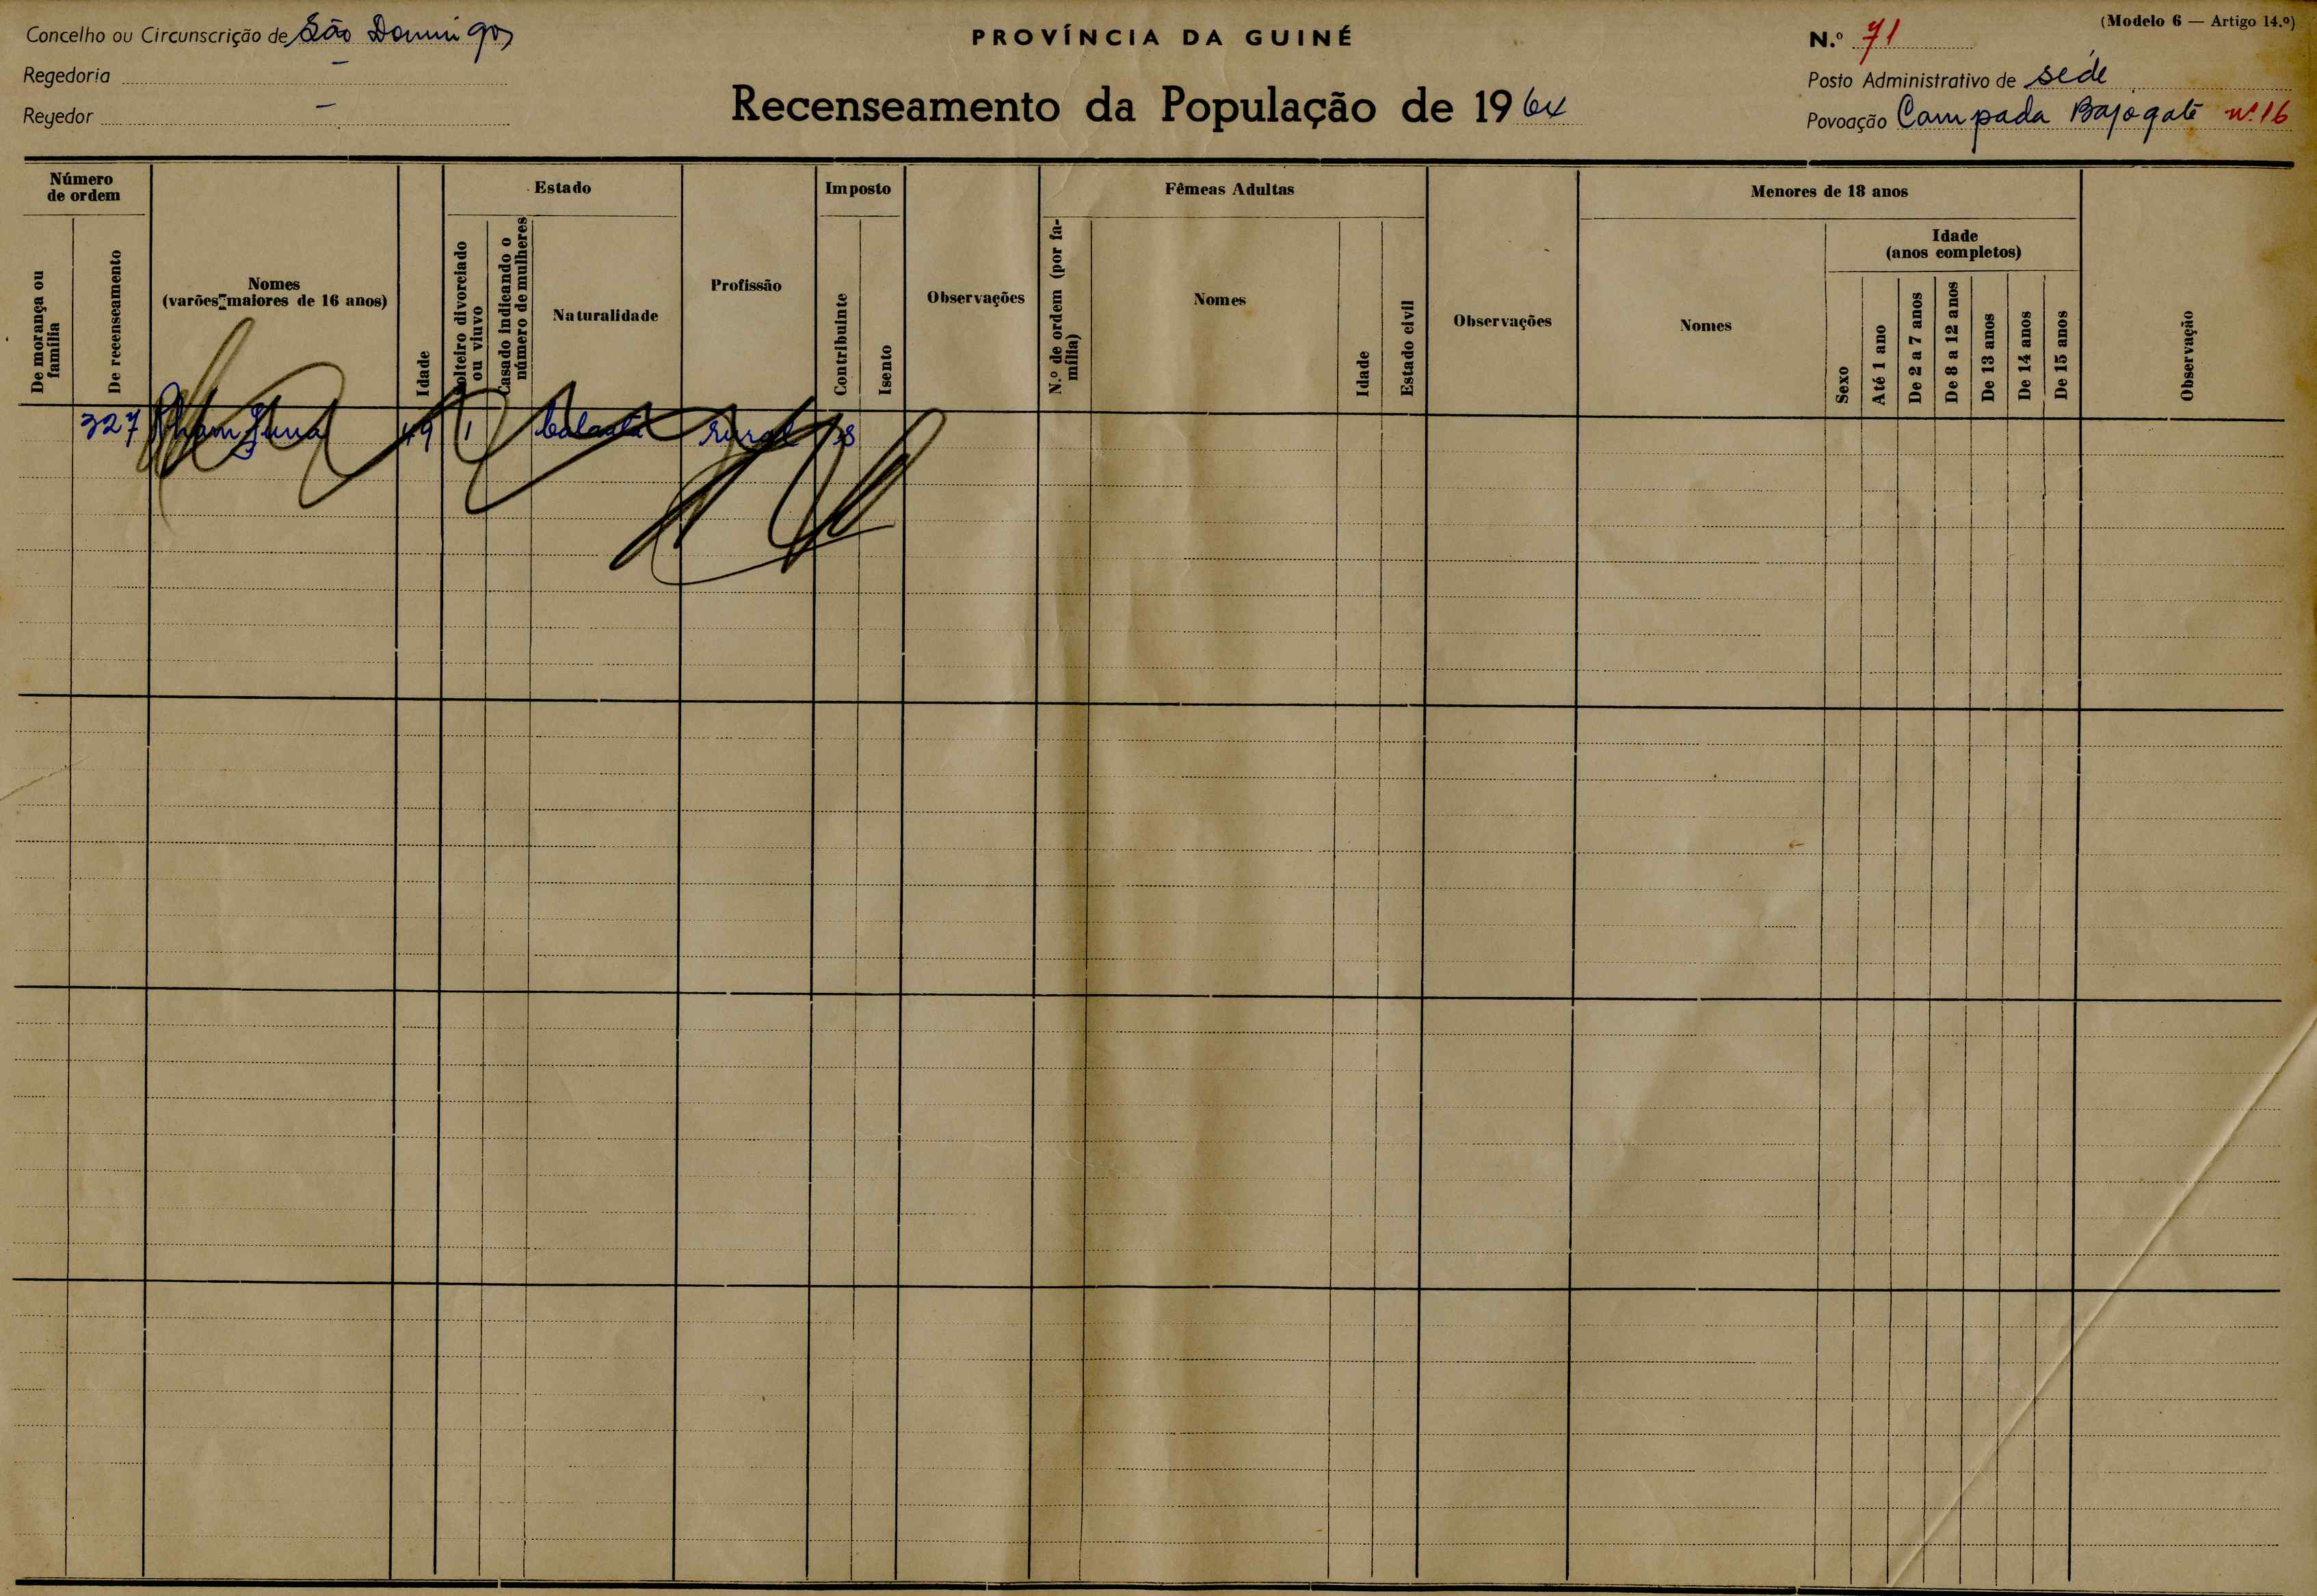 Concelho ou Circunscrição de São Domingos
PROVÍNCIA DA GUINÉ
N.º 71
(Modelo 6 — Artigo 14.º)
Regedoria –
Posto Administrativo de séde
Regedor –
Recenseamento da População de 1964
Povoação Campada Bajogate nº 16
Número de ordem
De morança ou família
De recenseamento
Nomes
(varões maiores de 16 anos)
Idade
Estado
Solteiro divorciado ou viuvo
Casado indicando o número de mulheres
Naturalidade
Profissão
Imposto
Contribuinte
Isento
Observações
Fêmeas Adultas
N.º de ordem (por família)
Nomes
Idade
Estado civil
Observações
Menores de 18 anos
Nomes
Sexo
Idade
(anos completos)
Até 1 ano
De 2 a 7 anos
De 8 a 12 anos
De 13 anos
De 14 anos
De 15 anos
Observação
327 49 1 balanta rural